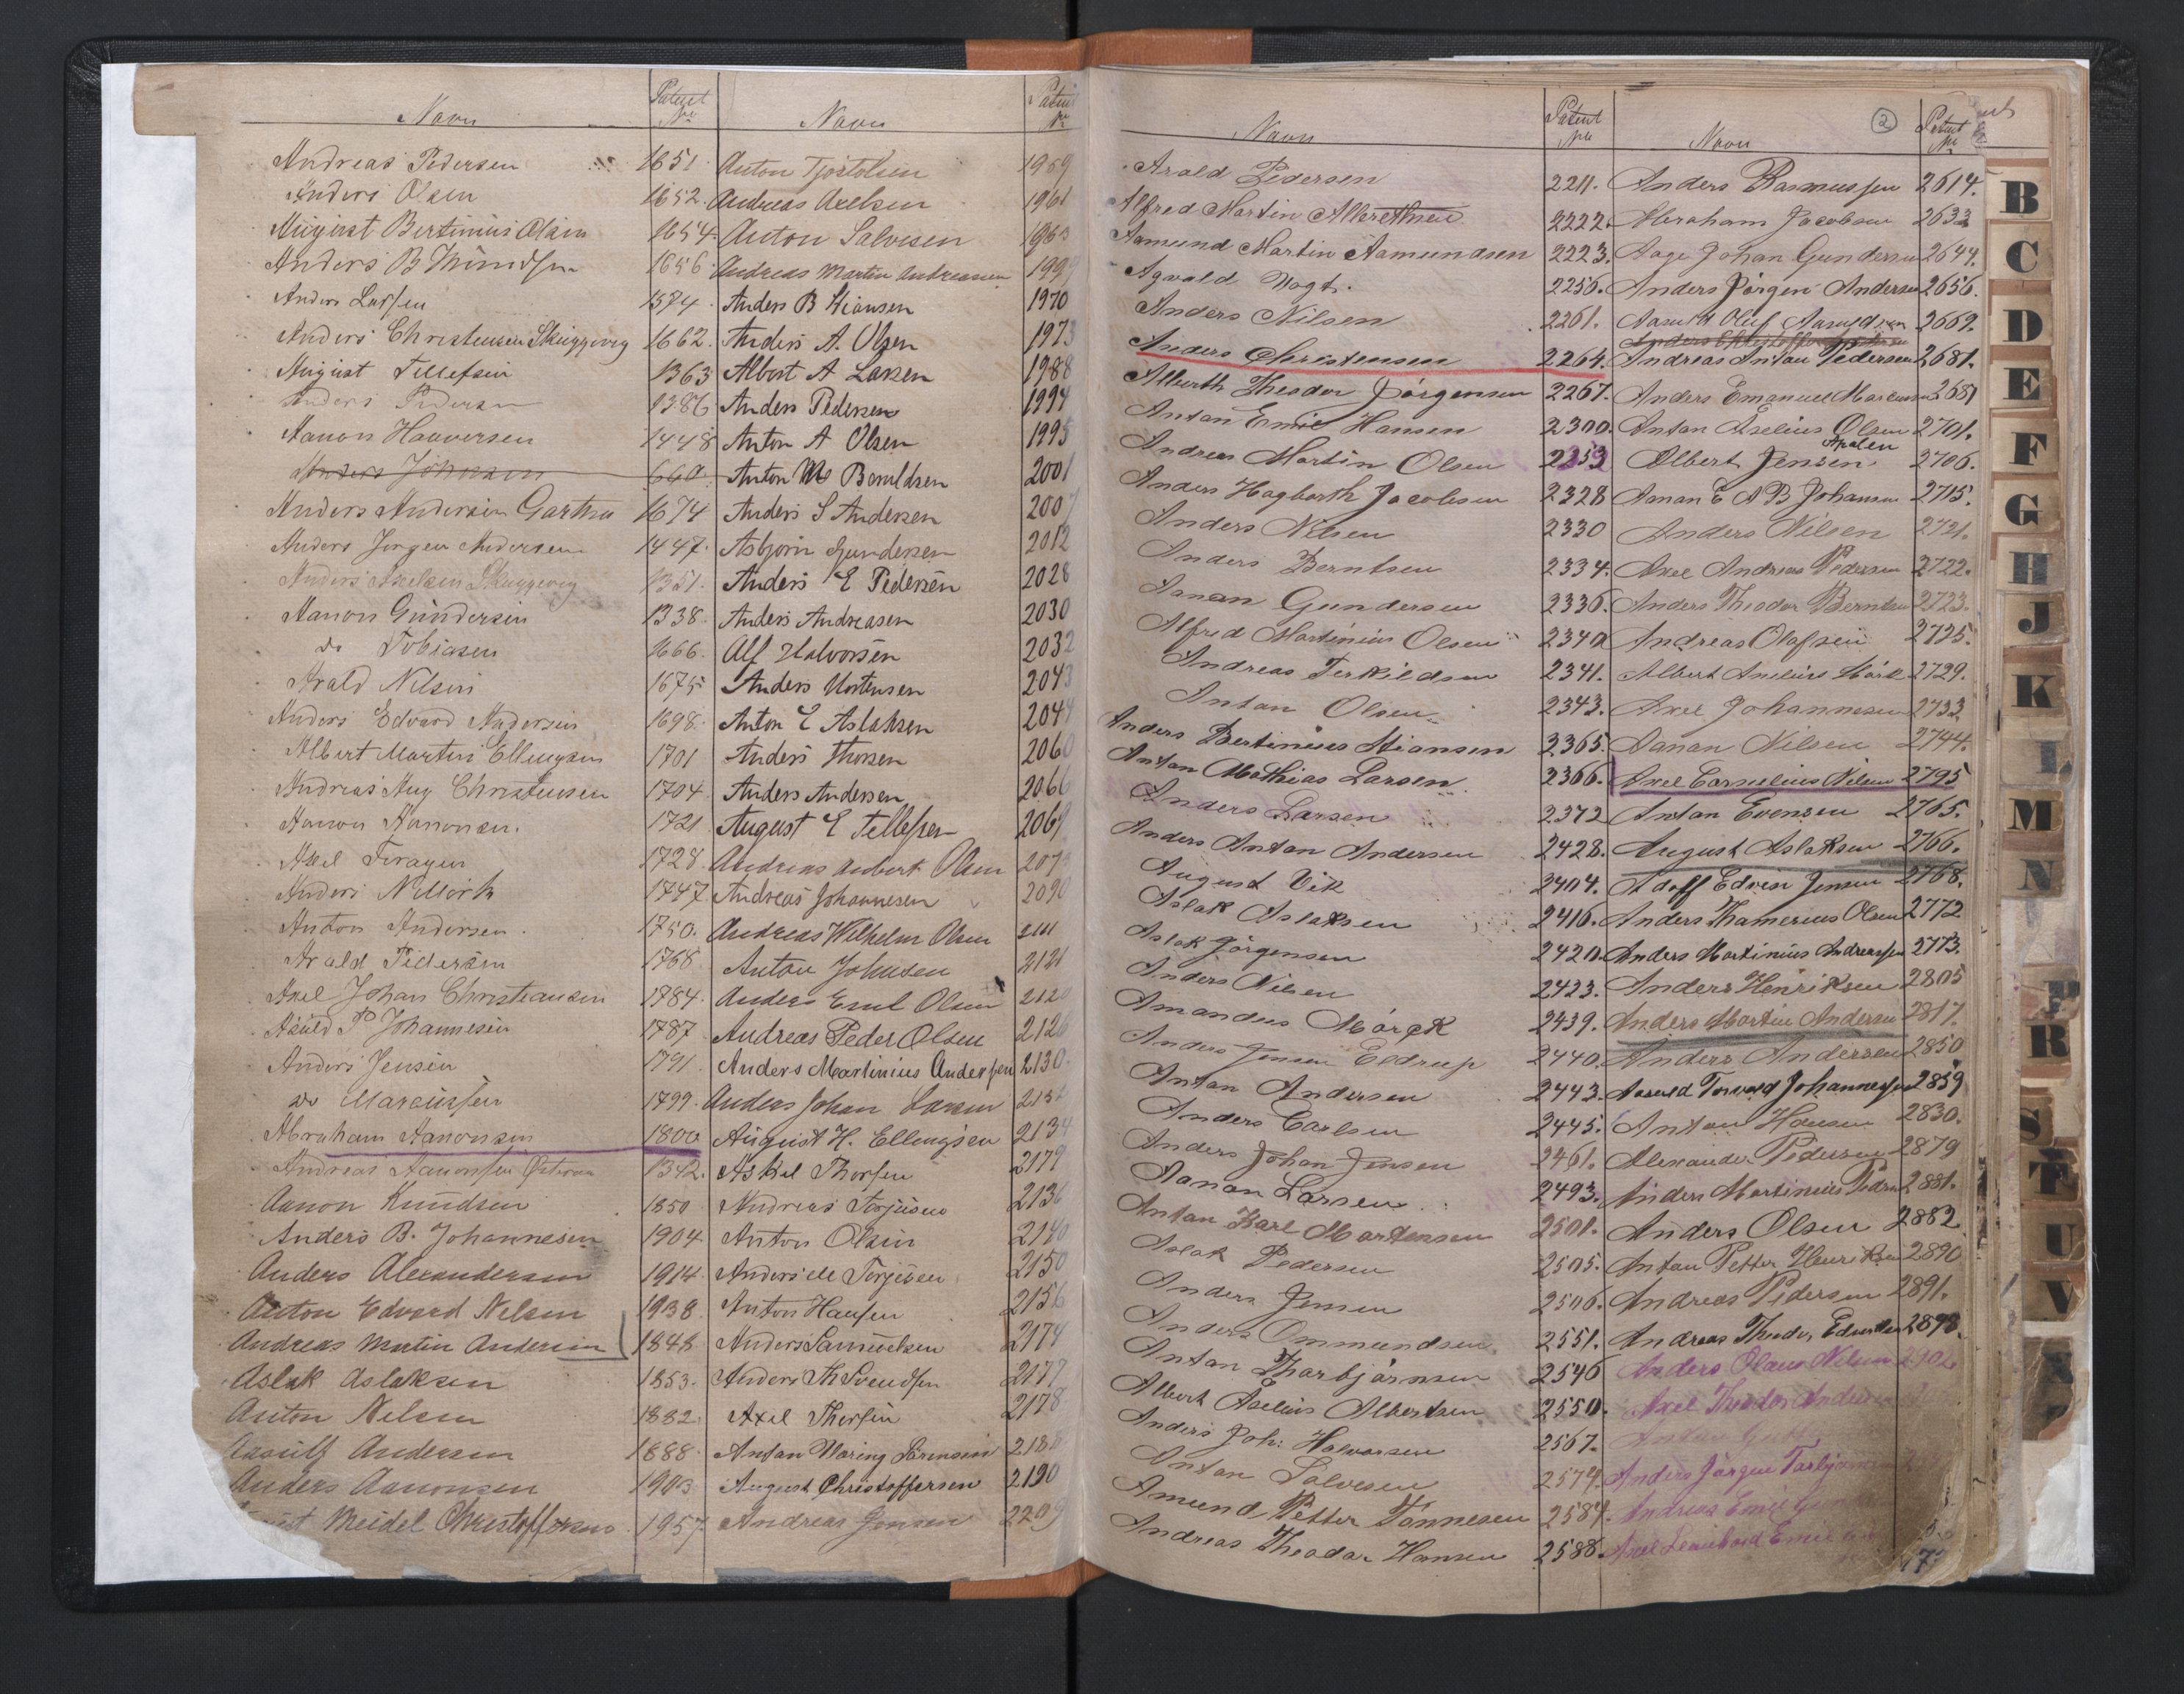 Navn
Patent No
Andreas Pedersen 1651.
Anders Olsen 1652.
August Bertinius Olsen 1654.
Anders B 1656.
Anders Larsen 1574.
Anders Christensen Skuggevig 1662.
August Tellefsen 1363
Anders Pedersen 1386
Aanon Haavorsen 1448
Anders Johnsen 660.
Anders Andersen Gartha 1674
Anders Jørgen Andersen 1447.
Anders Axelsen Skuggevig 1351.
Aanon Gundersen 1338.
do Tobiasen 1666.
Arald Nilsen 1675
Anders Edvard Andersen 1698.
Albert Martin Ellingsen 1701
Andreas Aug Christensen 1704.
Aanon Aanonsen. 1721
Axel 1728.
Anders 1747.
Anton Andersen. 1750.
Arald Pedersen 1768.
Axel Johan Christiansen 1784.
P Johannesen 1787
Anders Jensen 1791
do Marcussen 1799.
Abraham Aanonsen 1800
Andreas Aanonsen 1342.
Aanon Knudsen 1850
Anders B. Johannesen 1904
Anders Alexandersen 1914.
Anton Edvard Nelsen 1938.
Andreas Martin Andersen 1848
Aslak Aslaksen 1853.
Anton Nelsen 1882.
Andersen 1888.
Anders Aanonsen 1903
Meidel Christoffersen 1957
Navn
Patent No
Anton Tjøstolsen 1959
Andreas Axelsen 1961
Anton Salvesen 1963
Andreas Martin Andreasen
Anders B Stiansen 1970
Anders A. Olsen 1973
Albert A Larsen 1988
Anders Pedersen 1994
Anton A Olsen 1995
Anton Ms Boruldsen 2001
Anders S Andersen 2007
Asbjørn Gundersen 2012
Anders E Pedersen 2028
Anders Andreasen 2030
Alf Halvorsen 2032
Anders Mortensen 2043
Anton E Aslaksen 2044
Anders Thorsen 2060
Anders Andersen 2066
August E Tellefsen 2069
Andreas Anbert Olsen 2073
Andreas Johannesen 2090
Andreas Wilhelm Olsen 2111
Anton Johnsen 2121
Anders Emil Olsen 2120
Andreas Peder Olsen 2126
Anders Martinius Andersen 2130.
Anders Johan Larsen
August H. Ellingsen 2134
Askel Thorsen 2179
Andreas Terjesen 2136
Anton Olsen 2140
Anders M Terjesen 2150
Anton Hansen 2156
Anders Samuelsen 2174
Anders Th Svendsen 2177
Axel Thorsen 2178
Anton Waring Sørensen 2188
August Christoffersen 2190
Andreas Jensen 2209
Navn
Patent No
Arald Pedersen 2211.
Alfred Martin Albrethsen 2222.
Aamund Martin Aamundsen 2223.
Agvald Vogt. 2256.
Anders Nilsen 2261.
Anders Christensen 2264.
Alberth Theodor Jørgensen 2267.
Anton Emil Hansen 2300.
Andreas Martin Olsen 2353
Anders Hagbarth Jacobsen 2328
Anders Nilsen 2330
Anders Berntsen 2334.
Aanan Gundersen 2336.
Alfred Martinius Olsen 2340
Andreas Terkildsen 2341.
Anton Olsen 2343.
Anders Bertinius Stiansen 2365.
Anton Mathias Larsen 2366.
Anders Larsen 2372
Anders Anton Andersen 2428.
August Vik 2404.
Aslak Aslaksen 2416.
Aslak Jørgensen 2420.
Anders Nilsen 2423.
Amandus Mørck 2439.
Anders Jensen Eldrup 2440.
Anton Andersen 2443.
Anders Carlsen 2445.
Anders Johan Jensen 2461.
Aanan Larsen 2493.
Anton Karl Mortensen 2501.
Aslak Pedersen 2505.
Anders Jensen 2506.
Anders Ommundsen 2551.
Anton Thorbjørnsen 2546
Albert Aselius Albertsen 2550.
Anders Joh. Halvorsen 2567.
Anton Salvesen 2574.
Amund Petter Tønnesen 2584.
Andreas Theodor Hansen 2588.
Navn
2
Patent No
Anders Rasmussen 2614.
Abraham Jacobsen 2633
Aage Johan Gundersen 2644.
Anders Jørgen Andersen 2656.
Aasuld Oluf Aasuldsen 2669.
Andreas Anton Pedersen 2681.
Anders Emanuel Marcussen 2687
Anton Aselius Olsen 2701.
Albert Jensen Aualen 2706.
Aanan E A B Johansen 2715.
Anders Nilsen 2721.
Axel Andreas Pedersen 2722.
Anders Theodor Berntsen 2723.
Andreas Olafsen 2725.
Albert Anelius 2729.
Axel Johannesen 2733
Aanan Nilsen 2744.
Axel Cornelius Nilsen 2795
Anton Evensen 2765.
August Aslaksen 2766.
Adolf Edvin Jensen 2768.
Anders Thamesius Olsen 2772
Anders Martinius Andreassen 2773.
Anders Henriksen 2805
Anders Martin Andersen 2817.
Anders Andersen 2850
Aasuld Torvald Johannessen 2859
Anton Hansen 2830.
Alexander Pedersen 2879
Anders Martinius Peder 2881.
Anders Olsen 2882
Anton Petter Henriksen 2890
Andreas Pedersen 2891.
Andreas Theodor 2898.
Anders Olaus Nilsen
Axel Theodor Andersen
Anders Jørgen Torbjørnsen
Andreas Emil
Axel
B
C
D
E
F
G
H
J
K
L
M
N
P
R
S
T
U
V